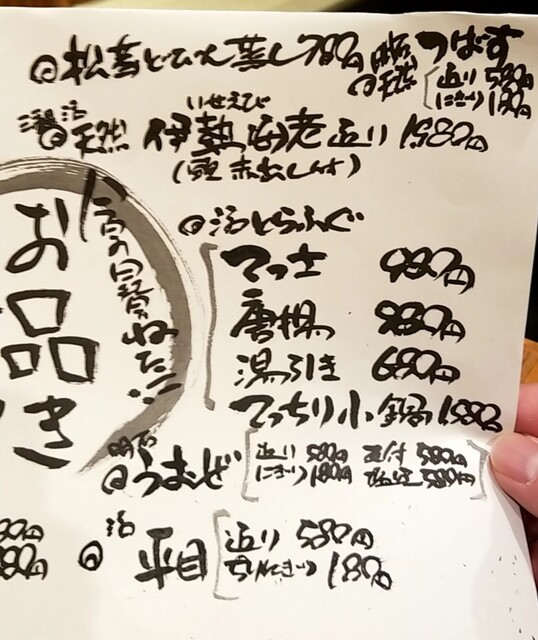 ◎松茸どびん蒸し780円
◎天然 つばす
造り 580円
にぎり 180円
活
◎天然 伊勢海老造り 1980円
いせえび
(頭 赤出し付)
◎活とらふぐ
てっさ 980円
唐揚 980円
湯引き 680円
てっちり小鍋1580
今宵の自慢ねた!!
お品
き
明石
◎うおぜ
造り 580円
にぎり 180円
580円
塩焼 580円
活
◎平目
造り 580円
にぎり 180円
80円
80円